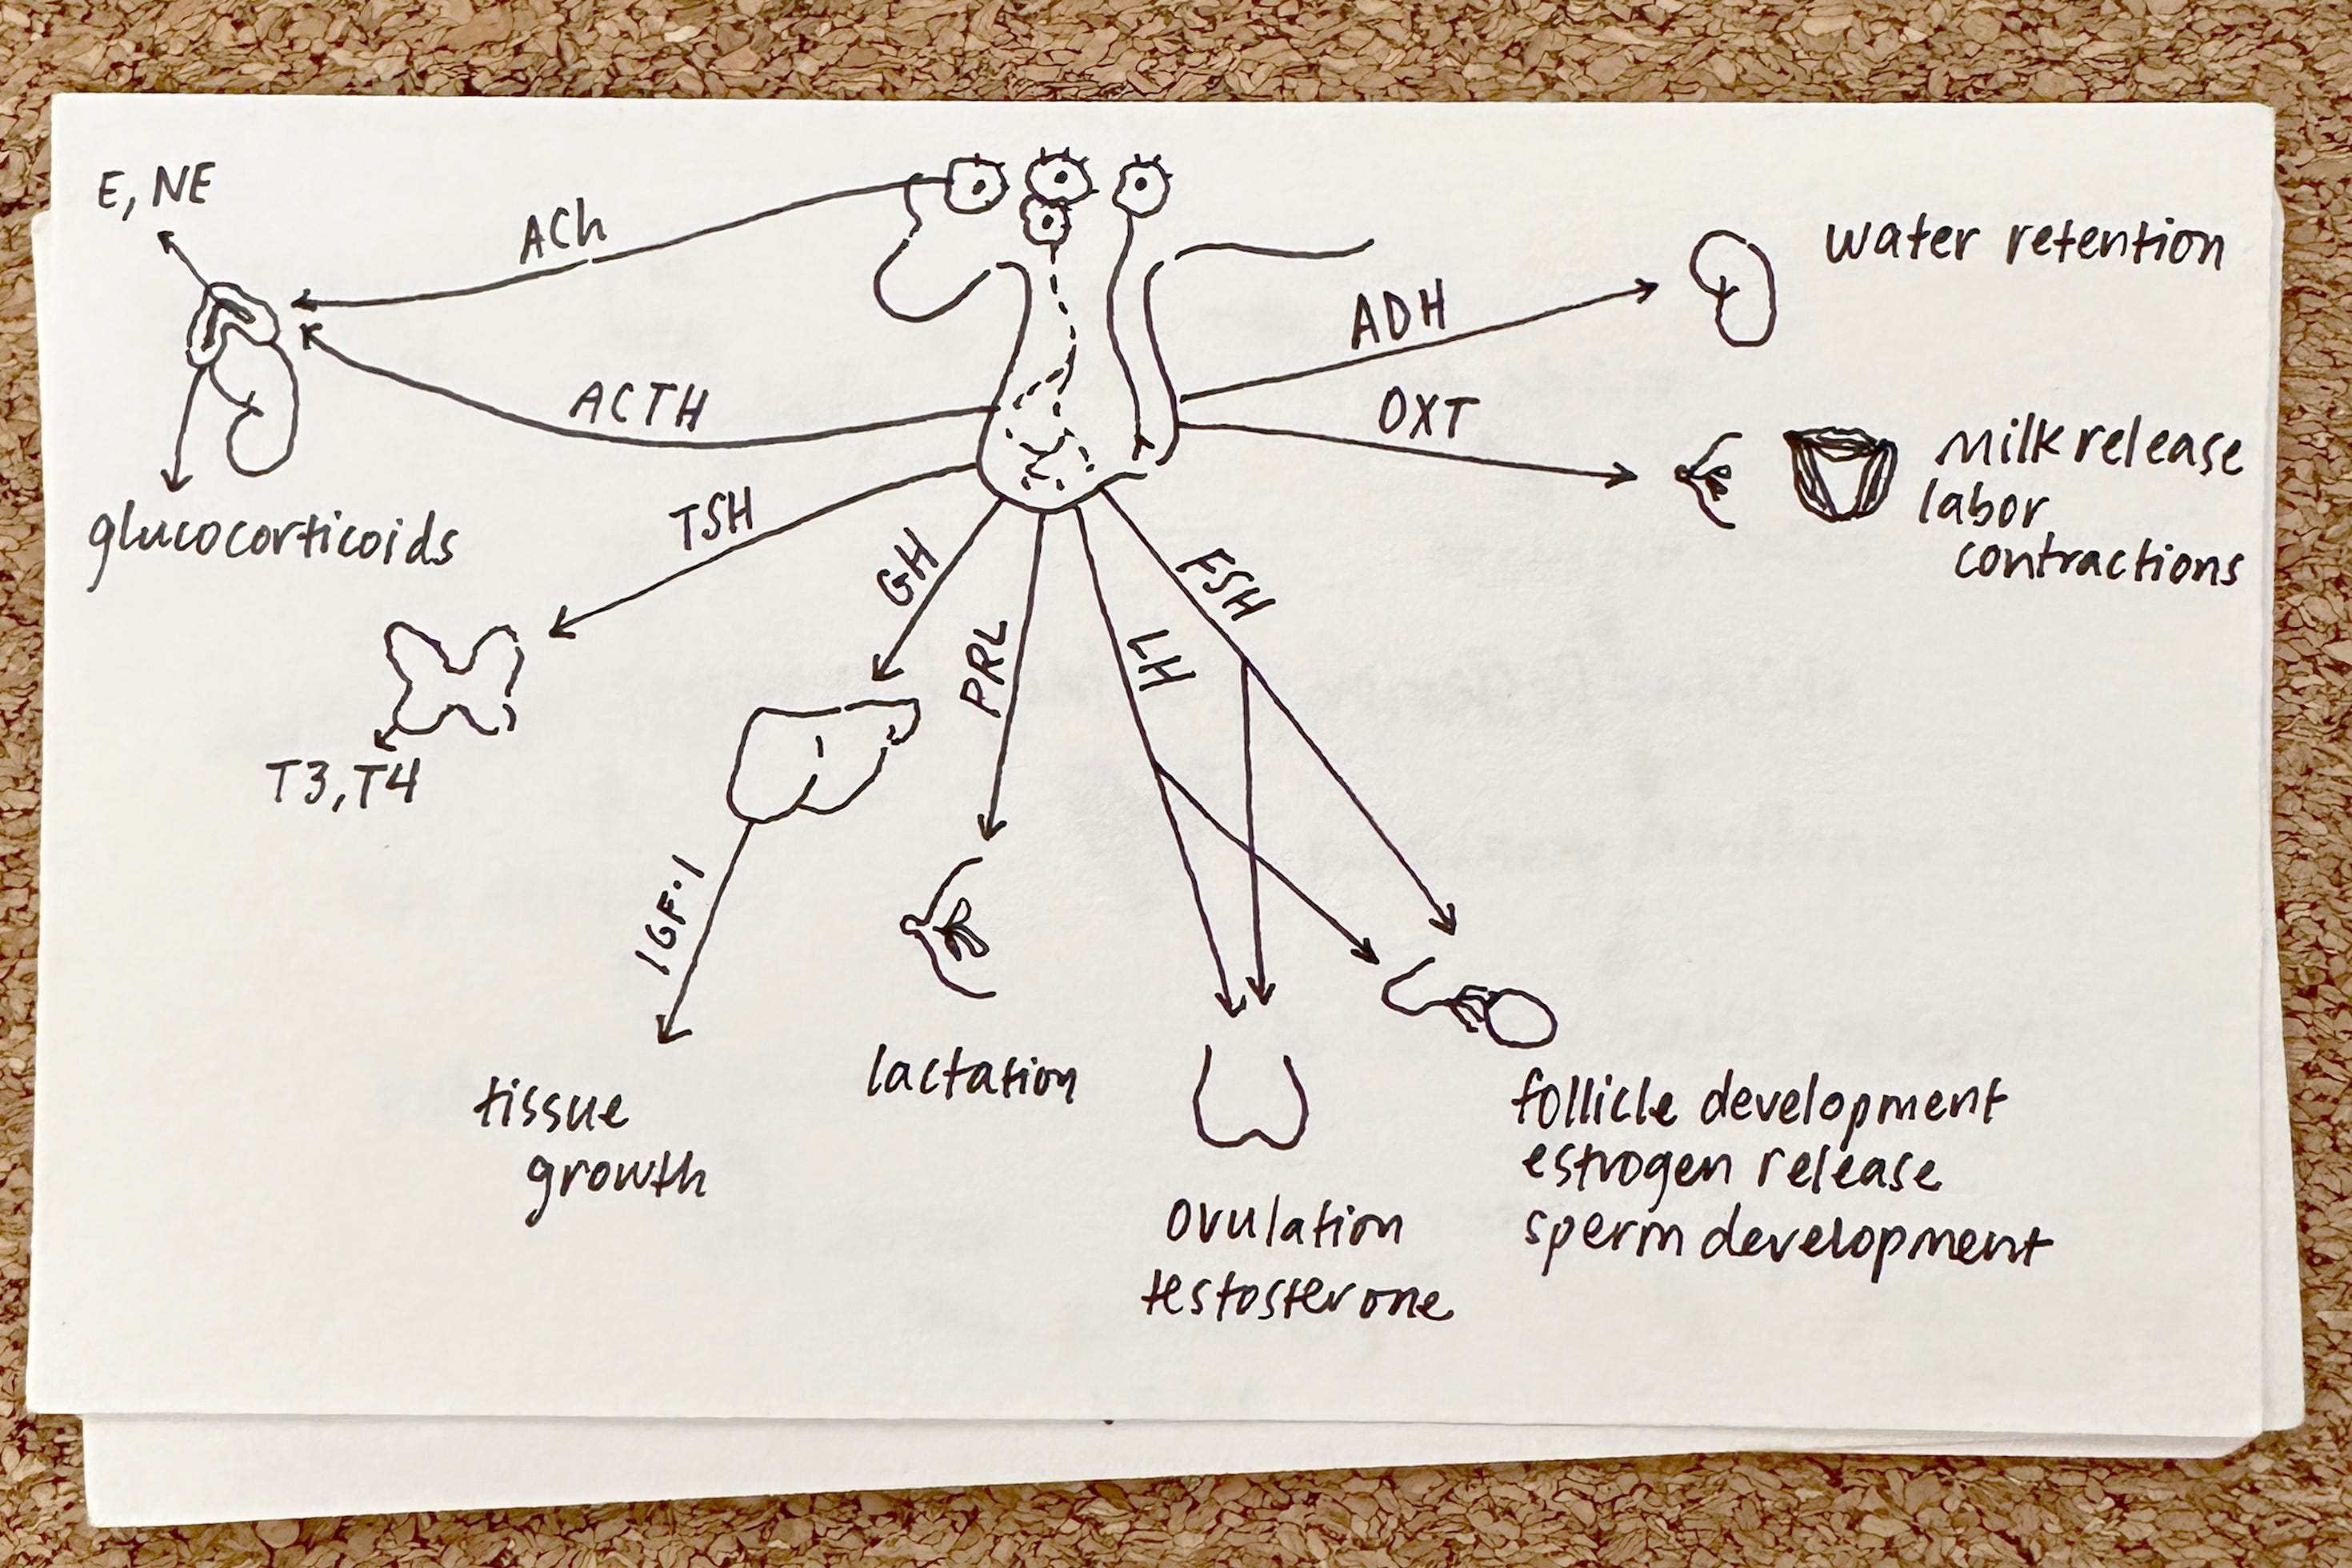 E, NE
ACh
water retention
ADH
ACTH
OXT
milk release
labor
contractions
glucocorticoids
TSH
GH
FSH
PRL
LH
T3, T4
IGF-1
lactation
tissue
growth
follicle development
estrogen release
sperm development
ovulation
testosterone